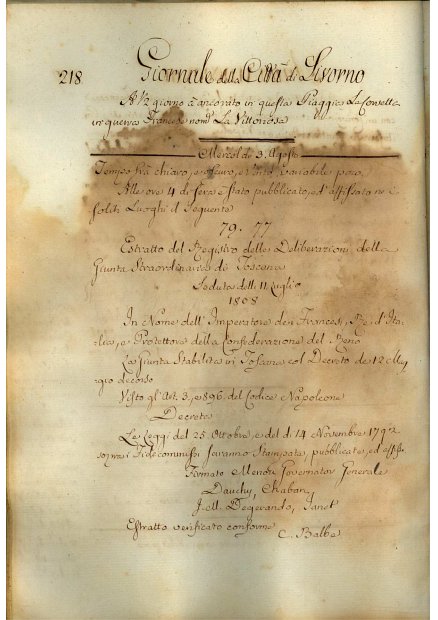 218
Giornale della Città di Livorno
A 1/2 giorno à ancorato in questa Piaggia La Corvetta
in guerra Francese nom.ta La Vittoriosa
Mercoldì 3. Agosto
Tempo trà chiaro, e oscuro, e vento variabile poco
Alle ore 4 di sera è stato pubblicato, ed affissato ne i
soliti Luoghi il seguente
79. 77
Estratto del Registro delle Deliberazioni della
Giunta Straordinaria di Toscana
Seduta dell' 11 Luglio
1808
In Nome dell' Imperatore dei Francesi, Re d' Ita-
lia, e Protettore della Confederazione del Reno
La Giunta Stabilita in Toscana col Decreto de 12 Mag-
gio decorso
Visto gl' Art. 3, e 896. del Codice Napoleone
Decreta
Le Leggi del 25. Ottobre, e del dì 14 Novembre 1792
sopra i Fidecommissi saranno Stampate, pubblicate, ed affisse
Firmato Menou Governator Generale
Dauchy, Chaban,
J. M. Degerando, Janet
Estratto verificato conforme
C. Balbe